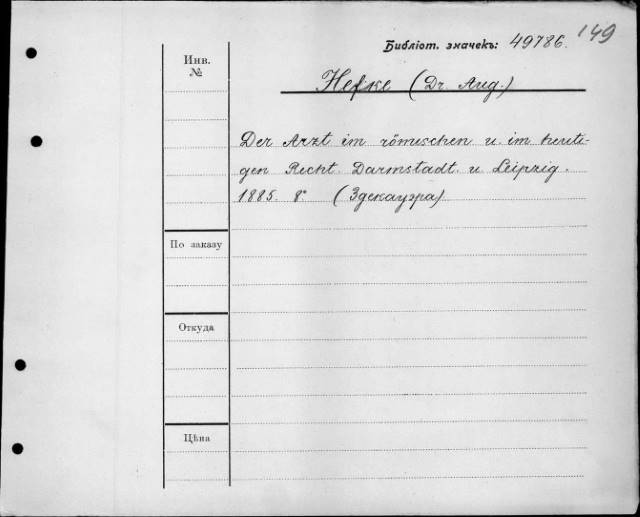 149
Библіот. значекъ: 49786.
Инв.
№
Hefke (Dr. Aug.)
Der Arzt im römischen u. im heuti-
gen Recht. Darmstadt. u. Leipzig.
1885. 8°. (Здекауэра)
По заказу
Откуда
Цѣна